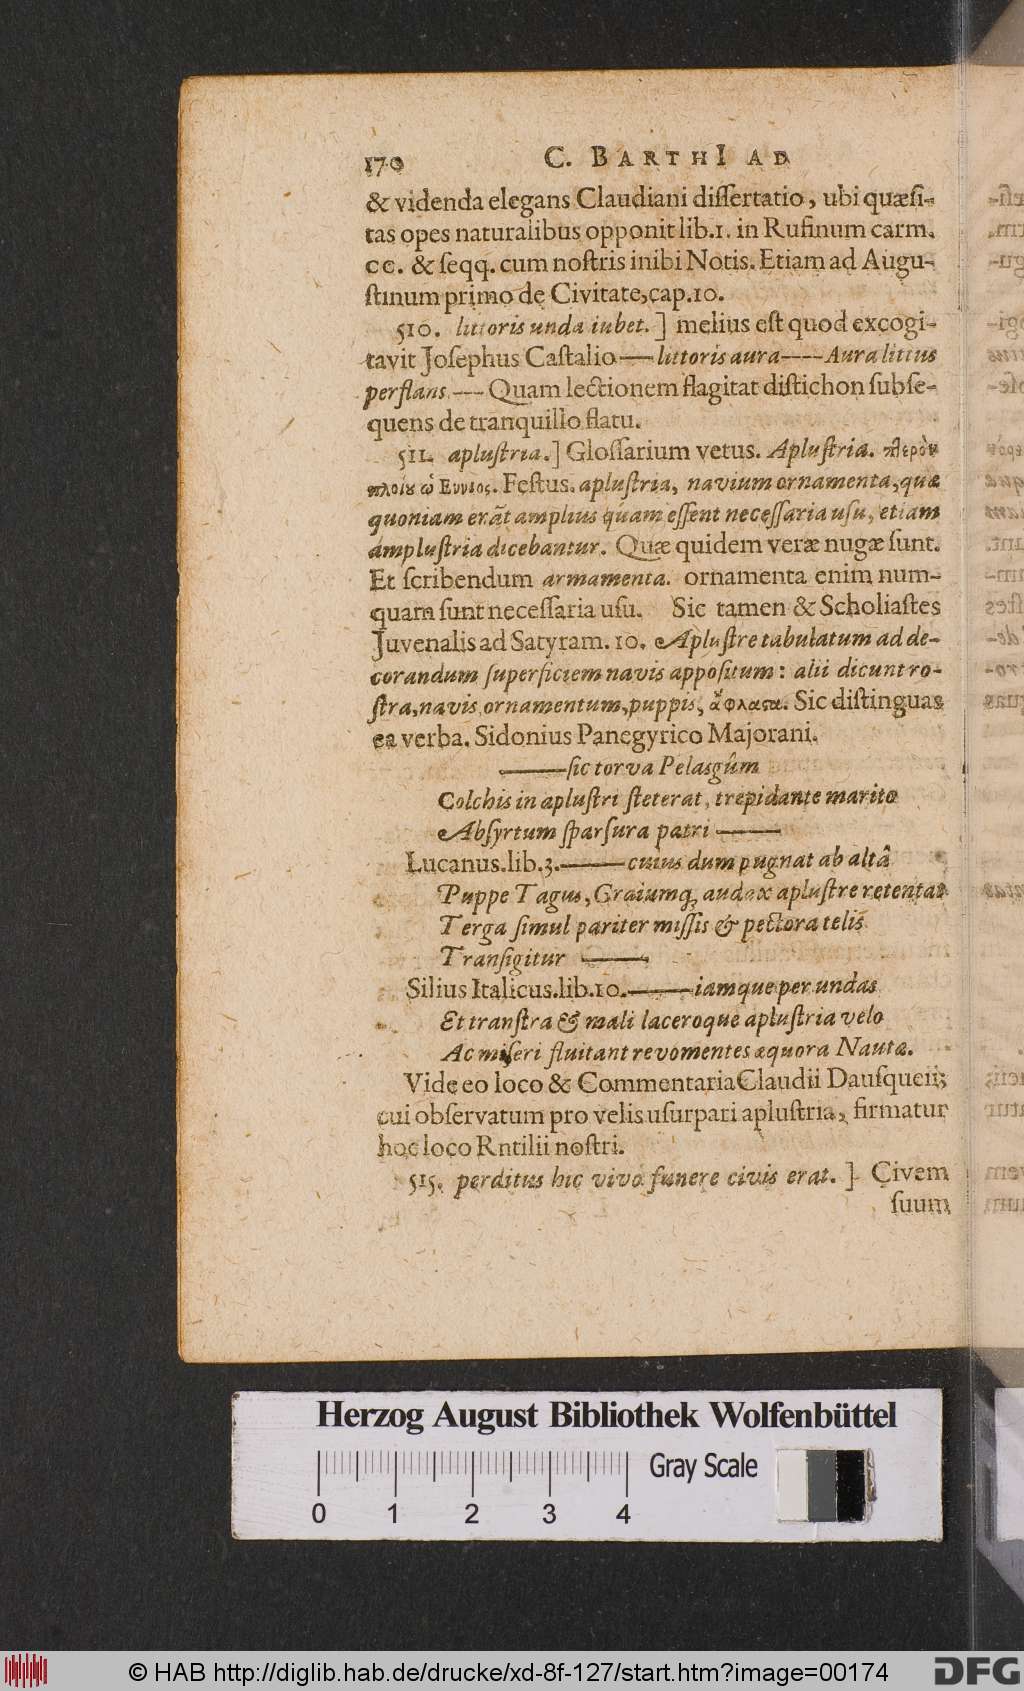 170 C. BARTHI AD
& videnda elegans Claudiani dissertatio, ubi quæsi-
tas opes naturalibus opponit lib.1. in Rufinum carm.
cc. & seqq. cum nostris inibi Notis. Etiam ad Augu-
stinum primo de Civitate, cap.10.
510. littoris unda iubet.] melius est quod excogi-
tavit Josephus Castalio — littoris aura ---- Aura littus
perflans --- Quam lectionem flagitat distichon subse-
quens de tranquillo flatu.
511. aplustria.] Glossarium vetus. Aplustria. πτερὸν
πλοίου ὡ Εννιος. Festus. aplustria, navium ornamenta, quæ
quoniam erāt amplius quam essent necessaria usu, etiam
amplustria dicebantur. Quæ quidem veræ nugæ sunt.
Et scribendum armamenta. ornamenta enim num-
quam sunt necessaria usu. Sic tamen & Scholiastes
Juvenalis ad Satyram. 10. Aplustre tabulatum ad de-
corandum superficiem navis appositum: alii dicunt ro-
stra, navis ornamentum, puppis, ἄφλαστα. Sic distinguas
ea verba. Sidonius Panegyrico Majorani.
——sic torva Pelasgûm
Colchis in aplustri steterat, trepidante marito
Absyrtum sparsura patri ——
Lucanus. lib. 3. —— cuius dum pugnat ab altâ
Puppe Tagus, Graiumq; audax aplustre retentat
Terga simul pariter missis & pectora telis
Transigitur ——
Silius Italicus. lib. 10. —— iamque per undas
Et transtra & mali laceroque aplustria velo
Ac miseri fluitant revomentes æquora Nautæ.
Vide eo loco & Commentaria Claudii Dausqueii;
cui observatum pro velis usurpari aplustria, firmatur
hoc loco Rntilii nostri.
515. perditus hic vivo funere civis erat.] Civem
suum
Herzog August Bibliothek Wolfenbüttel
Gray Scale
0 1 2 3 4
© HAB http://diglib.hab.de/drucke/xd-8f-127/start.htm?image=00174
DFG